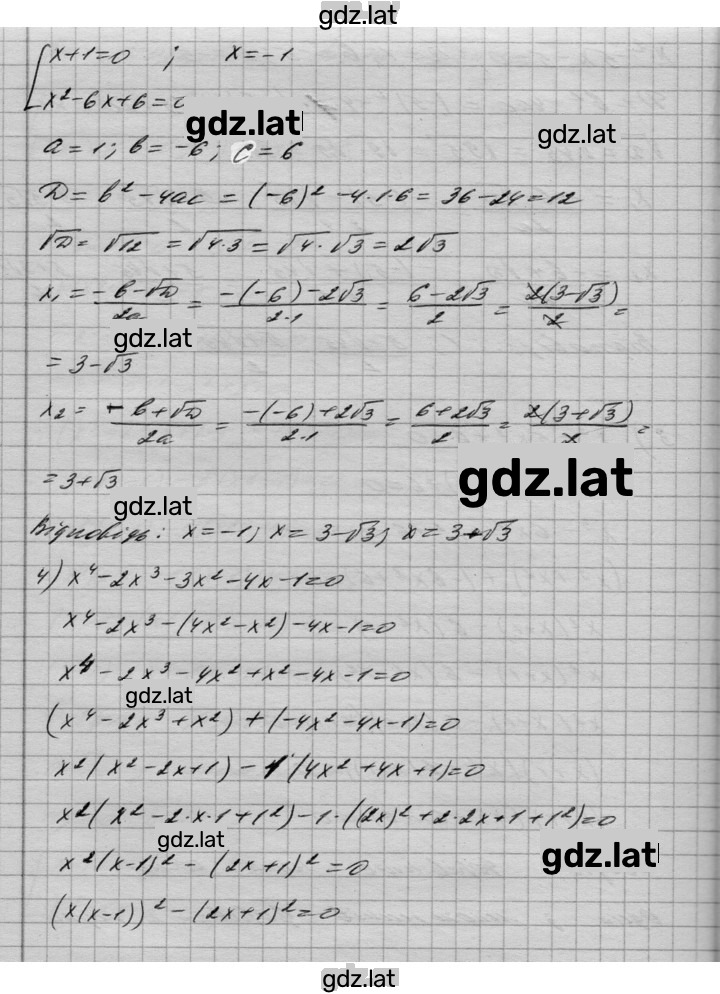 gdz.lat
x+1=0 ; x=-1
x²-6x+6=0
gdz.lat
gdz.lat
a=1; b=-6; c=6
D=b²-4ac=(-6)²-4·1·6=36-24=12
√D=√12=√4·3=√4·√3=2√3
x₁=(-b-√D)/2a=(-(-6)-2√3)/2·1=(6-2√3)/2=2(3-√3)/2=
gdz.lat
=3-√3
x₂=(-b+√D)/2a=(-(-6)+2√3)/2·1=(6+2√3)/2=2(3+√3)/2=
gdz.lat
=3+√3
gdz.lat
Відповідь: x=-1; x=3-√3; x=3+√3
4) x⁴-2x³-3x²-4x-1=0
x⁴-2x³-(4x²-x²)-4x-1=0
x⁴-2x³-4x²+x²-4x-1=0
gdz.lat
(x⁴-2x³+x²)+(-4x²-4x-1)=0
x²(x²-2x+1)-1(4x²+4x+1)=0
x²(x²-2·x·1+1²)-1·((2x)²+2·2x·1+1²)=0
gdz.lat
gdz.lat
x²(x-1)²-(2x+1)²=0
(x(x-1))²-(2x+1)²=0
gdz.lat